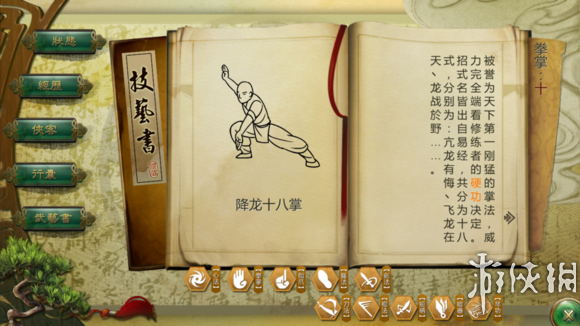 狀態
經歷
俠客
行囊
技藝書
技藝書
降龙十八掌
拳掌：十
被誉为天下第一刚猛的掌法，威
力完全端看修练者的硬功决定。
招式名皆出自易经，共分为十八
式，分别为：亢龙有悔、飞龙在
天、龙战於野……。
游侠网